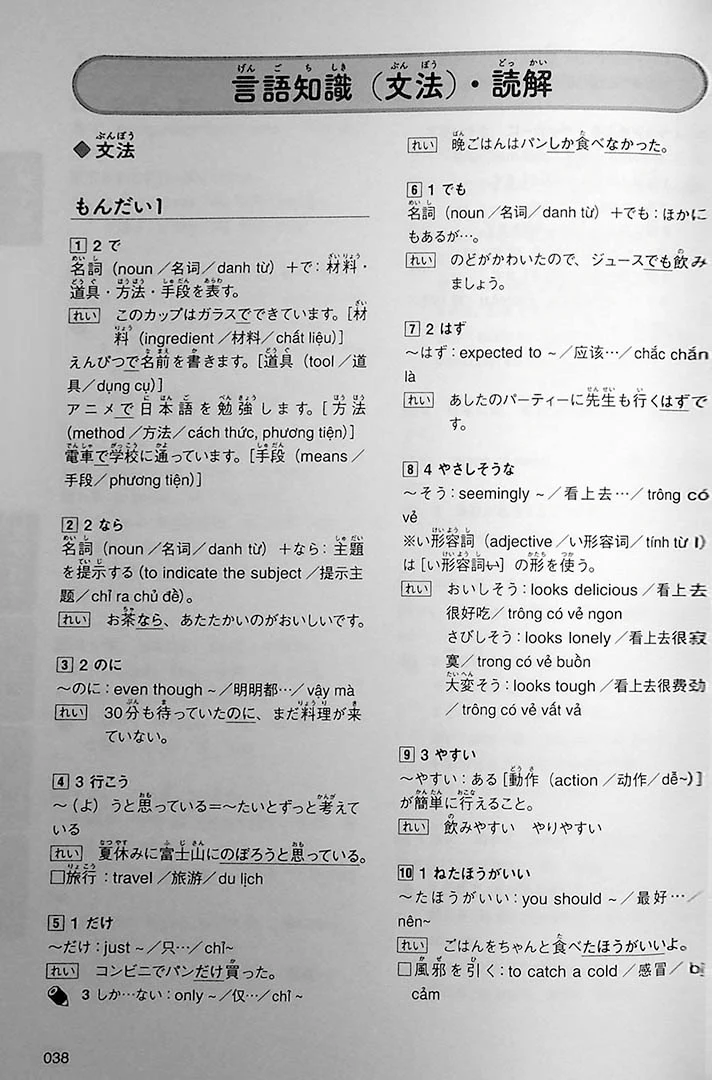 言語知識（文法）・読解
◆文法
もんだい1
1 2 で
名詞（noun／名词／danh từ）＋で：材料・
道具・方法・手段を表す。
れい このカップはガラスでできています。［材
料（ingredient／材料／chất liệu）］
えんぴつで名前を書きます。［道具（tool／道
具／dụng cụ）］
アニメで日本語を勉強します。［方法
（method／方法／cách thức, phương tiện）］
電車で学校に通っています。［手段（means／
手段／phương tiện）］
2 2 なら
名詞（noun／名词／danh từ）＋なら：主題
を提示する（to indicate the subject／提示主
题／chỉ ra chủ đề）。
れい お茶なら、あたたかいのがおいしいです。
3 2 のに
～のに：even though ~／明明都…／vậy mà
れい 30分も待っていたのに、まだ料理が来
ていない。
4 3 行こう
～（よ）うと思っている＝～たいとずっと考えて
いる
れい 夏休みに富士山にのぼろうと思っている。
□旅行：travel／旅游／du lịch
5 1 だけ
～だけ：just ~／只…／chỉ~
れい コンビニでパンだけ買った。
3 しか…ない：only ~／仅…／chỉ ~
れい 晩ごはんはパンしか食べなかった。
6 1 でも
名詞（noun／名词／danh từ）＋でも：ほかに
もあるが…。
れい のどがかわいたので、ジュースでも飲み
ましょう。
7 2 はず
～はず：expected to ~／应该…／chắc chắn
là
れい あしたのパーティーに先生も行くはずで
す。
8 4 やさしそうな
～そう：seemingly ~／看上去…／trông có
vẻ
※い形容詞（adjective／い形容词／tính từ い）
は［い形容詞い］の形を使う。
れい おいしそう：looks delicious／看上去
很好吃／trông có vẻ ngon
さびしそう：looks lonely／看上去很寂
寞／trong có vẻ buồn
大変そう：looks tough／看上去很费劲
／trông có vẻ vất vả
9 3 やすい
～やすい：ある［動作（action／动作／dễ~）］
が簡単に行えること。
れい 飲みやすい やりやすい
10 1 ねたほうがいい
～たほうがいい：you should ~／最好…／
nên~
れい ごはんをちゃんと食べたほうがいいよ。
□風邪を引く：to catch a cold／感冒／bị
cảm
038